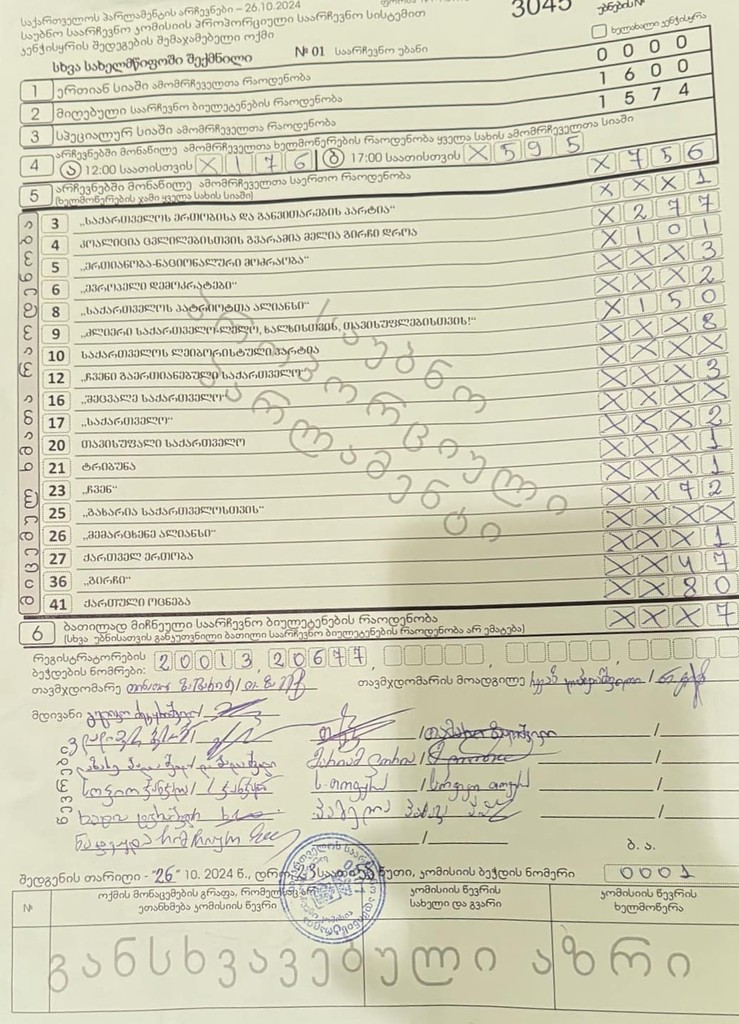 საქართველოს პარლამენტის არჩევნები – 26.10.2024
საუბნო საარჩევნო კომისიის პროპორციული საარჩევნო სისტემით
კენჭისყრის შედეგების შემაჯამებელი ოქმი
3045
უბნების №
ხელახალი კენჭისყრა
სხვა სახელმწიფოში შექმნილი № 01 საარჩევნო უბანი
1 ერთიან სიაში ამომრჩეველთა რაოდენობა 0 0 0 0
2 მიღებული საარჩევნო ბიულეტენების რაოდენობა 1 6 0 0
3 სპეციალურ სიაში ამომრჩეველთა რაოდენობა 1 5 7 4
4 არჩევნებში მონაწილე ამომრჩეველთა ხელმოწერების რაოდენობა ყველა სახის ამომრჩეველთა სიაში
ა 12:00 საათისთვის X 1 7 6 ბ 17:00 საათისთვის X 5 9 5
5 არჩევნებში მონაწილე ამომრჩეველთა საერთო რაოდენობა X 7 5 6
(ხელმოწერების ჯამი ყველა სახის სიაში)
მიცემულ ხმათა რაოდენობა
3 „საქართველოს ერთობისა და განვითარების პარტია“ X X X 1
4 კოალიცია ცვლილებისთვის გვარამია მელია გირჩი დროა X 2 7 7
5 „ერთიანობა-ნაციონალური მოძრაობა“ X 1 0 1
6 „ევროპელი დემოკრატები“ X X X 3
8 „საქართველოს პატრიოტთა ალიანსი“ X X X 2
9 „ძლიერი საქართველო-ლელო, ხალხისთვის, თავისუფლებისთვის!“ X 1 5 0
10 საქართველოს ლეიბორისტული პარტია X X X 8
12 „ჩვენი გაერთიანებული საქართველო“ X X X X
16 „შეცვალე საქართველო“ X X X 3
17 „საქართველო“ X X X X
20 თავისუფალი საქართველო X X X 2
21 ტრიბუნა X X X 1
23 „ჩვენ“ X X X 1
25 „გახარია საქართველოსთვის“ X X 7 2
26 „მემარცხენე ალიანსი“ X X X X
27 ქართველ ერთობა X X X 1
36 „გირჩი“ X X 4 7
41 ქართული ოცნება X X 8 0
საუბნო
პროპორციული
პარლამენტი
6 ბათილად მიჩნეული საარჩევნო ბიულეტენების რაოდენობა X X X 7
(სხვა უბნისათვის განკუთვნილი ბათილი საარჩევნო ბიულეტენების რაოდენობა არ ემატება)
რეგისტრატორების
ბეჭდების ნომრები: 2 0 0 1 3, 2 0 6 7 7,
თავმჯდომარე
თავმჯდომარის მოადგილე
მდივანი
წევრები
ბ. ა.
შედგენის თარიღი - "26" 10. 2024 წ., დრო 23 საათი წუთი, კომისიის ბეჭდის ნომერი 0 0 0 1
№
ოქმის მონაცემების გრაფა, რომელსაც არ
ეთანხმება კომისიის წევრი
კომისიის წევრის
სახელი და გვარი
კომისიის წევრის
ხელმოწერა
განსხვავებული აზრი